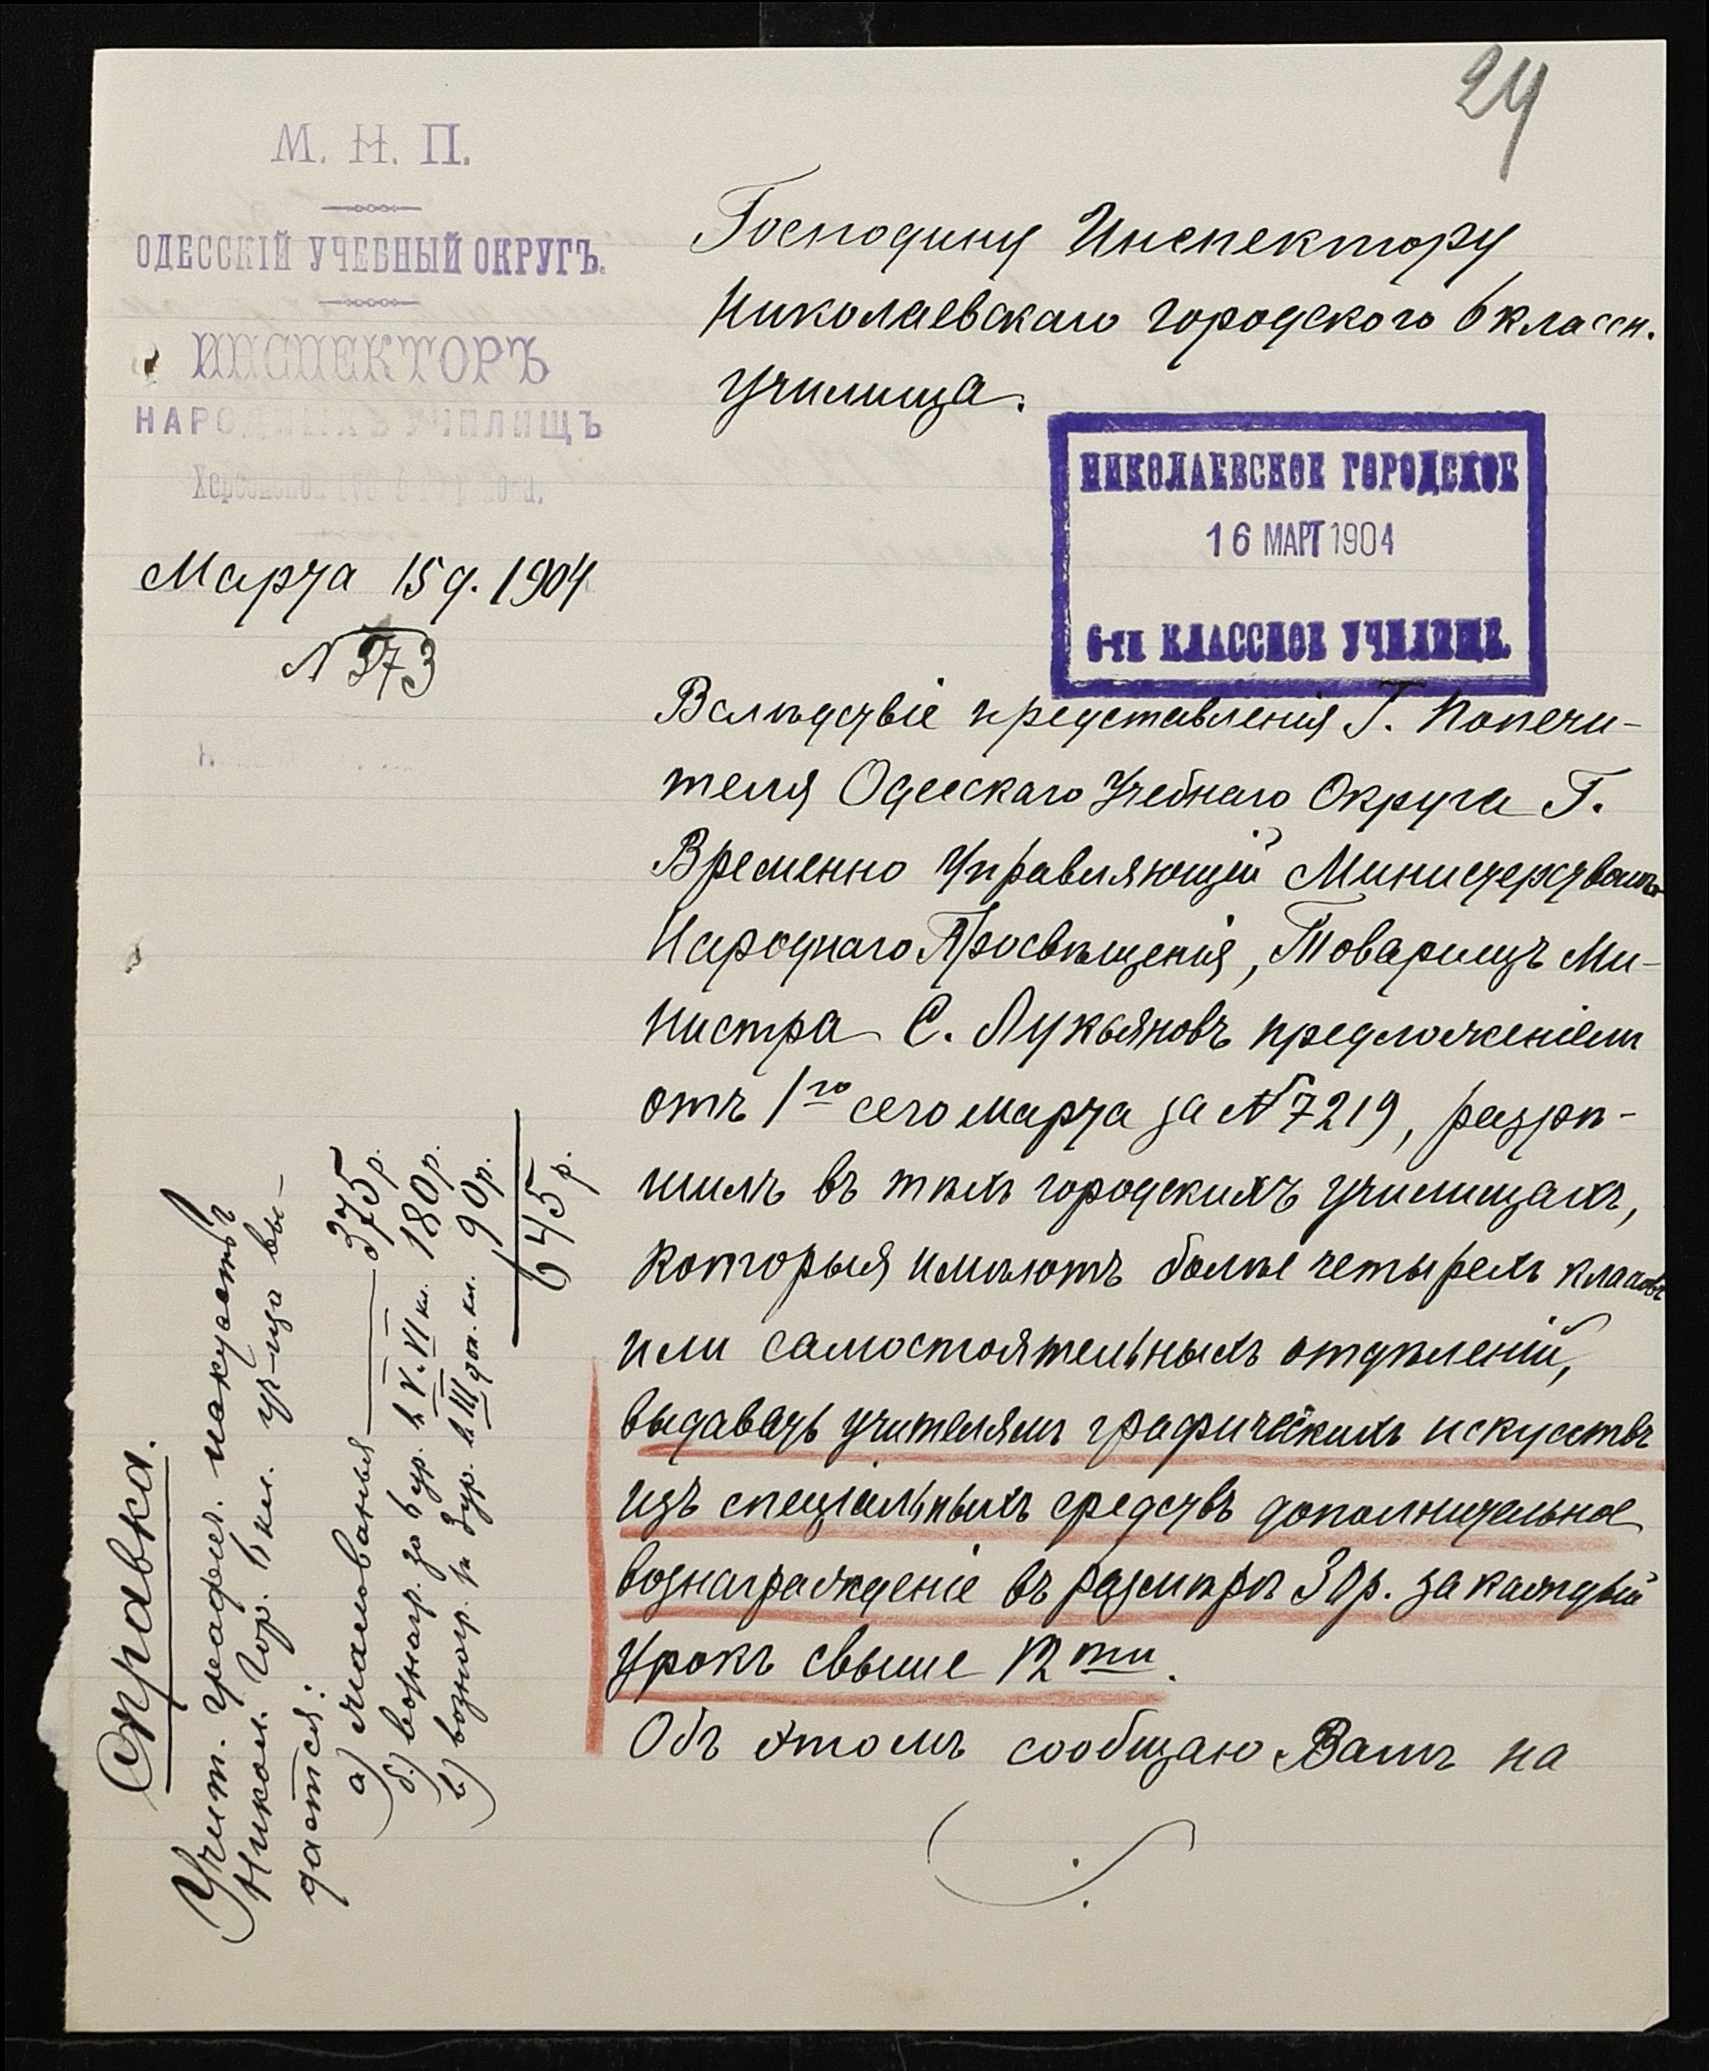 24
М. Н. П.
ОДЕССКІЙ УЧЕБНЫЙ ОКРУГЪ.
ИНСПЕКТОРЪ
НАРОДНЫХЪ УЧИЛИЩЪ
Марта 15 д. 1904
№ 373
Господину Инспектору
Николаевскаго городского 6 классн.
училища.
НИКОЛАЕВСКОЕ ГОРОДСКОЕ
16 МАРТ 1904
6-ти КЛАССНОЕ УЧИЛИЩЕ.
Вслѣдствіе представленія Г. Попечи-
теля Одесскаго Учебнаго Округа Г.
Временно Управляющій Министерствомъ
Народнаго Просвѣщенія, Товарищъ Ми-
нистра С. Лукьяновъ предложеніемъ
отъ 1го сего марта за № 7219, разрѣ-
шилъ въ тѣхъ городскихъ училищахъ,
которыя имѣютъ болѣе четырехъ классовъ
или самостоятельныхъ отдѣленій,
выдавать учителямъ графическихъ искусствъ
изъ спеціальныхъ средствъ дополнительное
вознагражденіе въ размѣрѣ 30 р. за каждый
урокъ свыше 12ти.
Объ этомъ сообщаю Вамъ на
Справка.
Учит. графич. искусствъ
Никол. Гор. 6 кл. уч-ща вы-
дается:
а) жалованья 375 р.
б) вознагр. за 6 ур. в V и VI кл. 180 р.
в) вознагр. 3 ур. в III доп. кл. 90 р.
645 р.